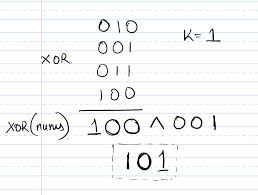 010
001
K = 1
XOR
011
100
XOR(nums) 100 ^ 001
101